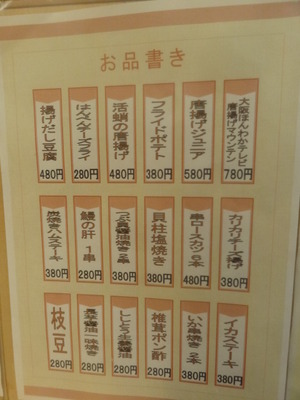 お品書き
大阪ほんわかテレビ
唐揚げマウンテン
780円
唐揚げジュニア
580円
フライドポテト
380円
活蛸の唐揚げ
480円
はんぺんチーズフライ
280円
揚げだし豆腐
480円
カリカリチーズ揚げ
380円
串ロースカツ6本
480円
貝柱塩焼き
380円
つぶ貝醤油焼き2串
380円
鰻の肝 1串
280円
炭焼きハムステーキ
380円
イカステーキ
380円
いか串焼き 2本
380円
椎茸ポン酢
280円
ししとう生姜醤油
280円
長芋醤油
一味焼き
280円
枝豆
280円